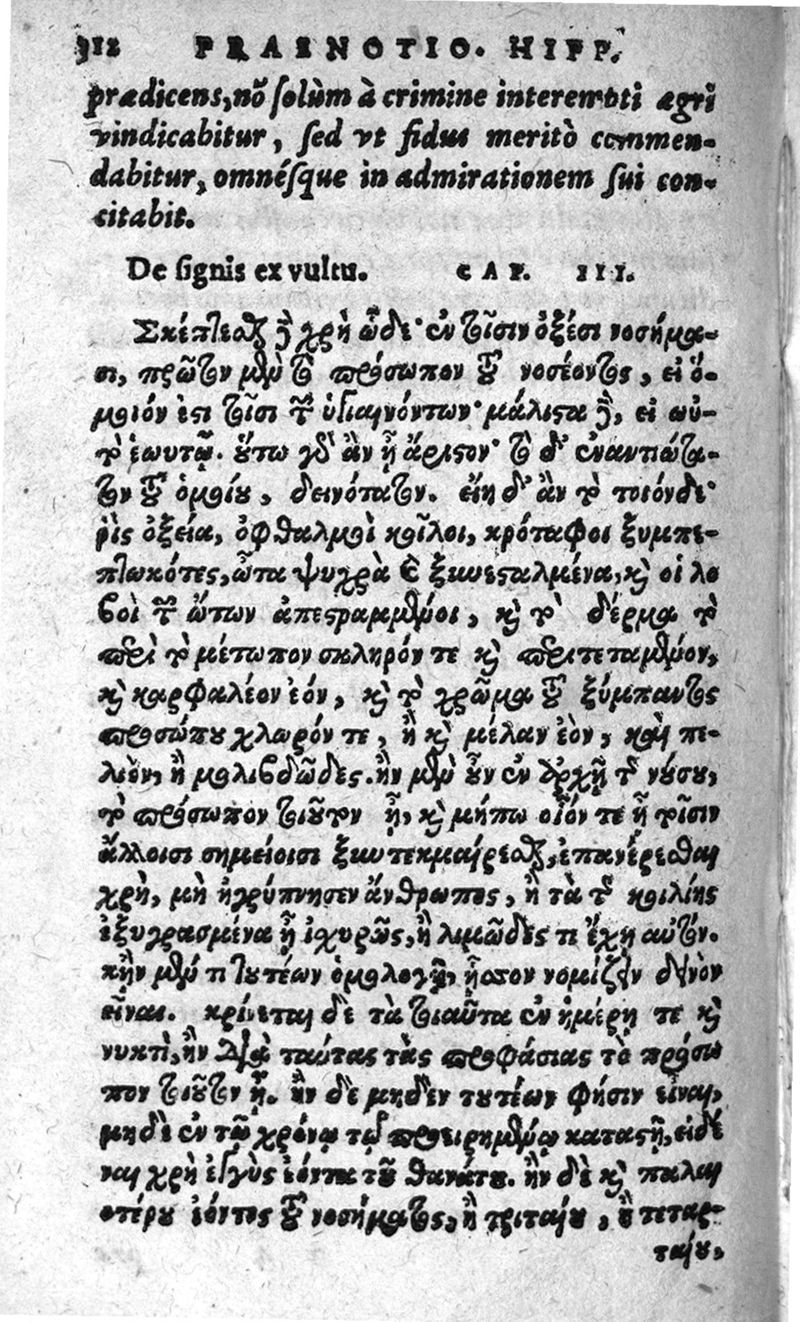 312 PRAENOTIO. HIPP.
prædicens, nõ solùm à crimine interemoti ægri
vindicabitur, sed vt fidus meritò commen-
dabitur, omnésque in admirationem sui con-
citabit.
De signis ex vultu. CAP. III.
Σκέπτεσθαι δὲ χρὴ ὧδε· ἐν τοῖσιν ὀξέσι νοσήμα-
σι, πρῶτον μὲν τὸ πρόσωπον τοῦ νοσέοντος, εἰ ὅ-
μοιόν ἐστι τοῖσι τῶν ὑγιαινόντων· μάλιστα δὲ, εἰ αὐ-
τὸ ἑωυτῷ. οὕτω γὰρ ἂν ᾖ ἄριστον· τὸ δ' ἐναντιώτα-
τον τοῦ ὁμοίου, δεινότατον. εἴη δ' ἂν τὸ τοιόνδε·
ῥὶς ὀξεία, ὀφθαλμοὶ κοῖλοι, κρόταφοι ξυμπε-
πτωκότες, ὦτα ψυχρὰ καὶ ξυνεσταλμένα, καὶ οἱ λο
βοὶ τῶν ὤτων ἀπεστραμμένοι, καὶ τὸ δέρμα τὸ
περὶ τὸ μέτωπον σκληρόν τε καὶ περιτεταμένον,
καὶ καρφαλέον ἐόν, καὶ τὸ χρῶμα τοῦ ξύμπαντος
προσώπου χλωρόν τε, ἢ καὶ μέλαν ἐὸν, καὶ πε-
λιὸν, ἢ μολιβδῶδες. ἢν μὲν οὖν ἐν ἀρχῇ τῆς νούσου,
τὸ πρόσωπον τοιοῦτον ᾖ, καὶ μήπω οἷόν τε ᾖ τοῖσιν
ἄλλοισι σημείοισι ξυντεκμαίρεσθαι, ἐπανέρεσθαι
χρὴ, μὴ ἠγρύπνησεν ἄνθρωπος, ἢ τὰ τῆς κοιλίης
ἐξυγρασμένα ᾖ ἰσχυρῶς, ἢ λιμῶδές τι ἔχῃ αὐτόν.
κἢν μέν τι τουτέων ὁμολογῇ, ἧσσον νομίζειν δεινὸν
εἶναι. κρίνεται δὲ τὰ τοιαῦτα ἐν ἡμέρῃ τε καὶ
νυκτὶ, ἢν διὰ ταύτας τὰς προφάσιας τὸ πρόσω
πον τοιοῦτον ᾖ. ἢν δὲ μηδὲν τουτέων φήσιν εἶναι,
μηδὲ ἐν τῷ χρόνῳ τῷ προειρημένῳ καταστῇ, εἰδέ
ναι χρὴ ἐγγὺς ἐόντα τοῦ θανάτου. ἢν δὲ καὶ παλαι
οτέρου ἐόντος τοῦ νοσήματος, ἢ τριταίου, ἢ τεταρ-
ταίου,